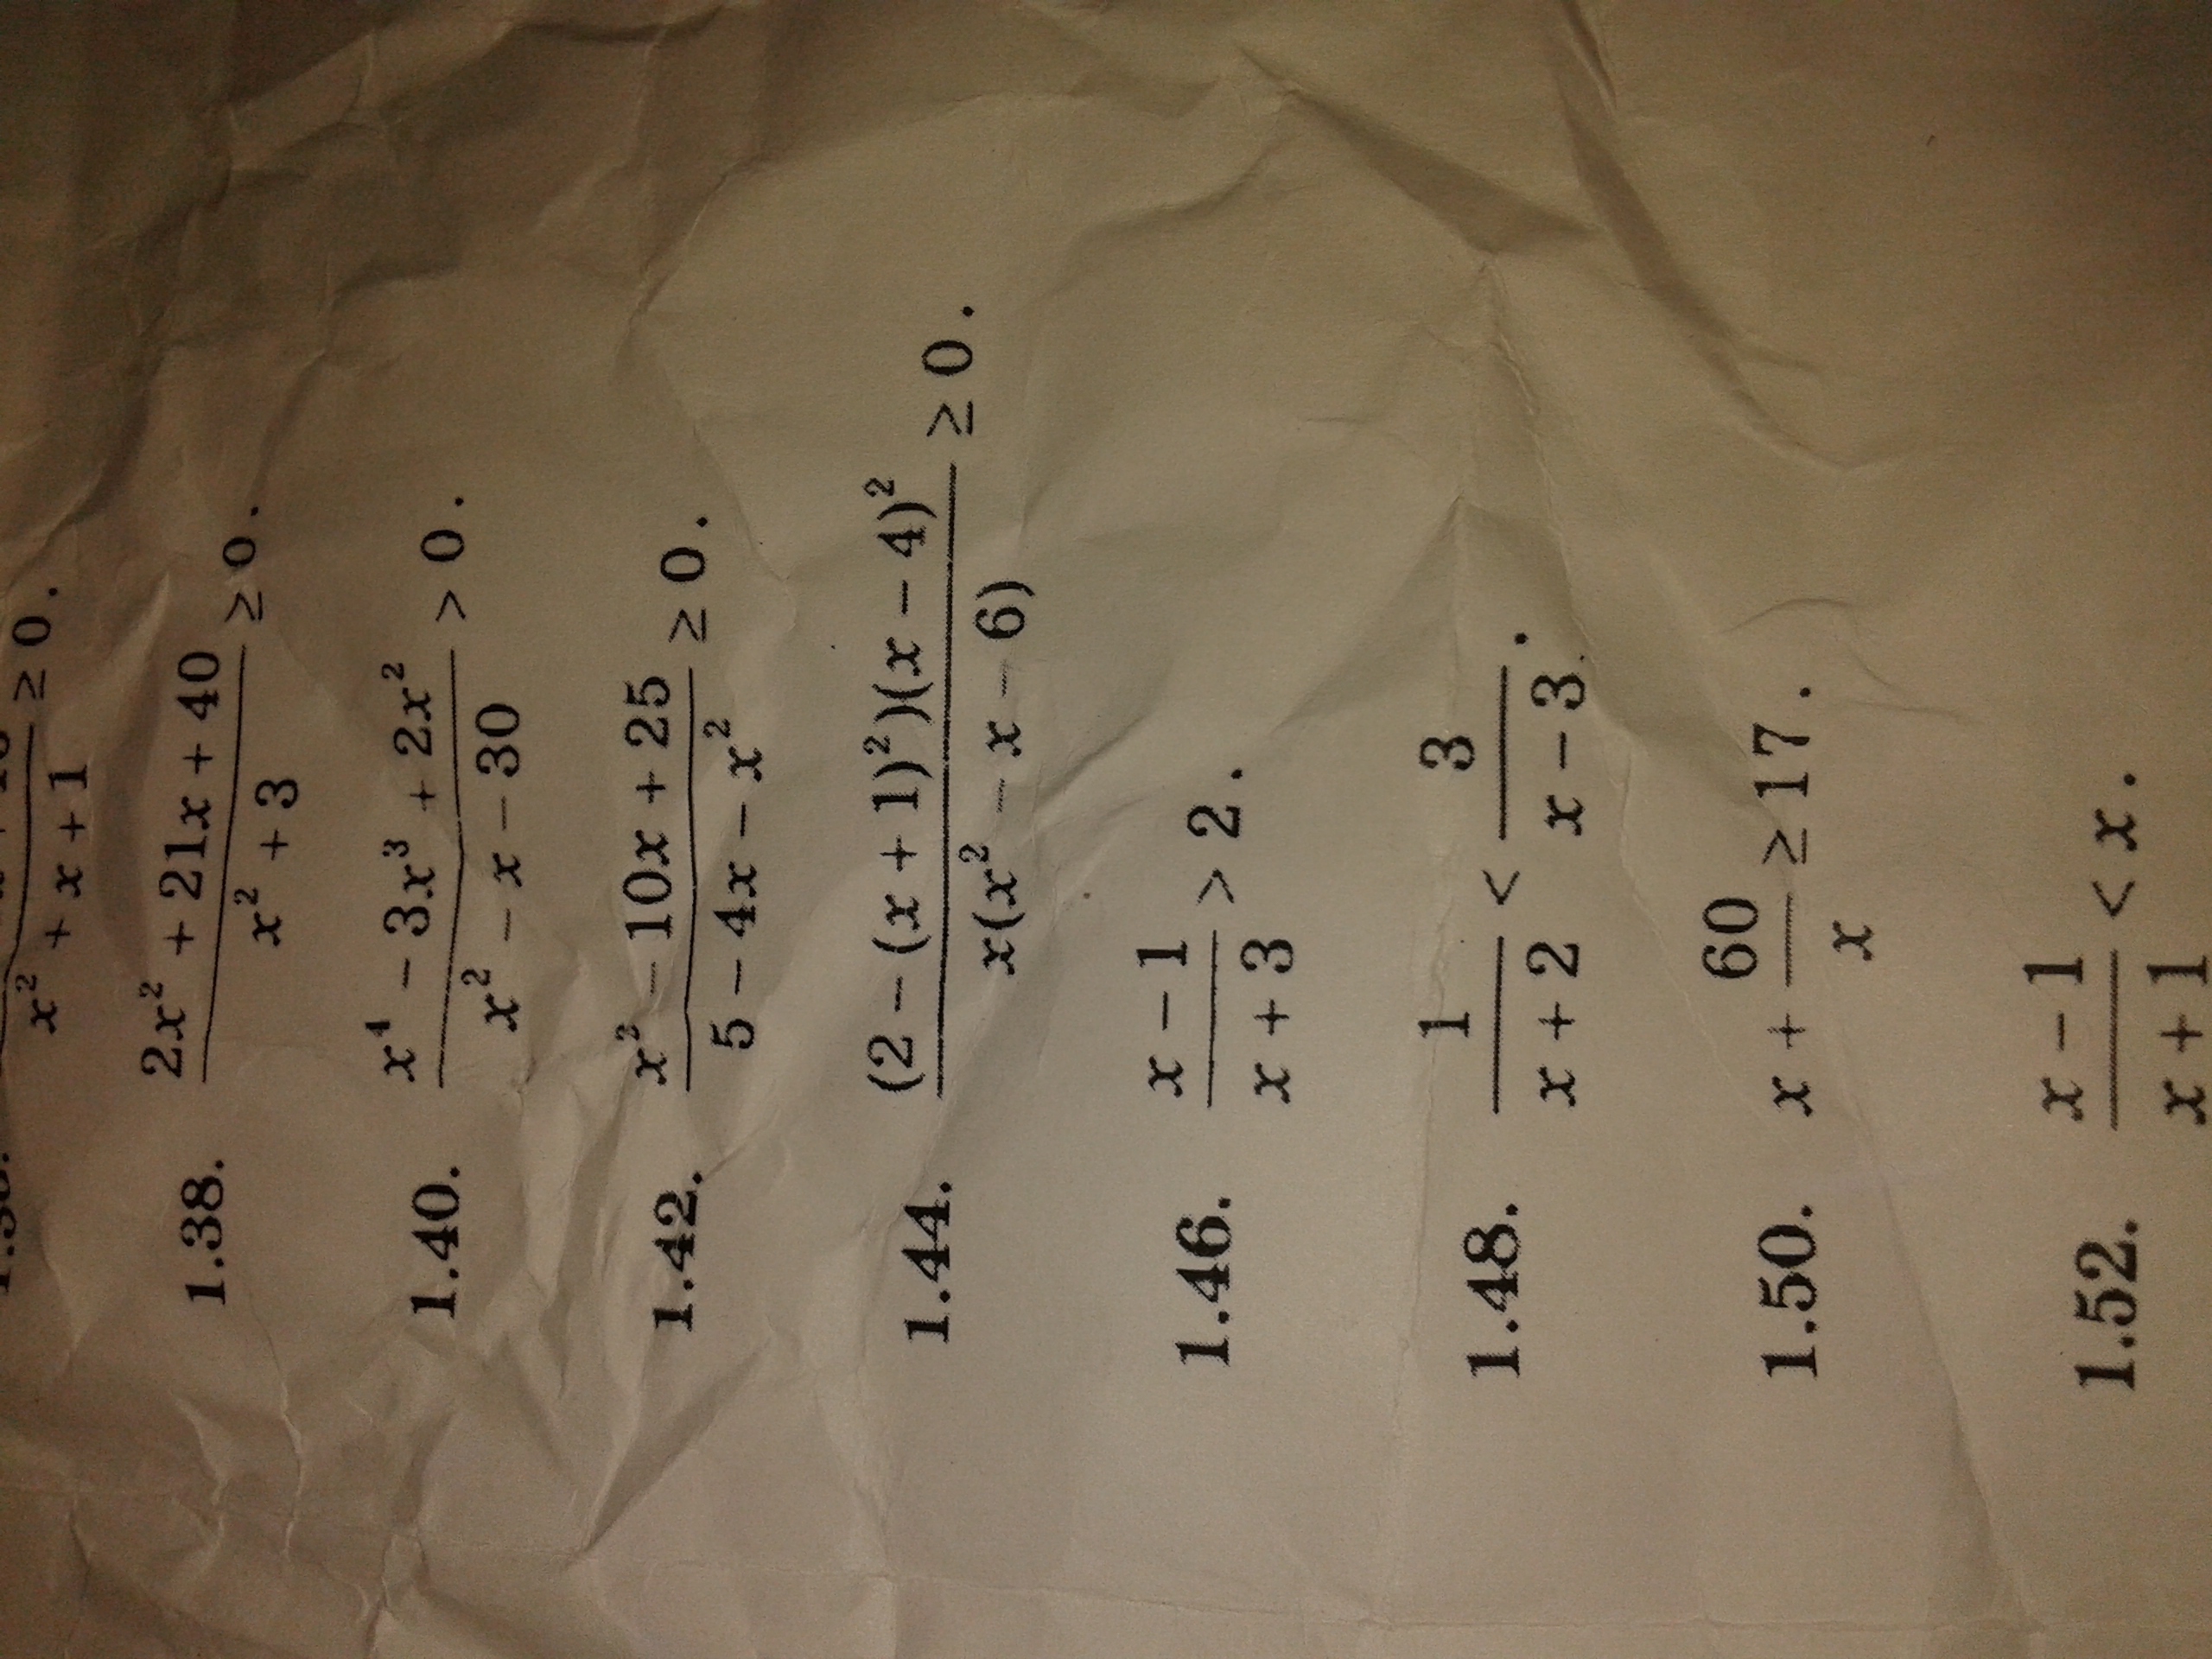 ≥ 0.
x² + x + 1
1.38. (2x² + 21x + 40)/(x² + 3) ≥ 0.
1.40. (x⁴ − 3x³ + 2x²)/(x² − x − 30) > 0.
1.42. (x² − 10x + 25)/(5 − 4x − x²) ≥ 0.
1.44. ((2 − (x + 1)²)(x − 4)²)/(x(x² − x − 6)) ≥ 0.
1.46. (x − 1)/(x + 3) > 2.
1.48. 1/(x + 2) < 3/(x − 3).
1.50. x + 60/x ≥ 17.
1.52. (x − 1)/(x + 1) < x.